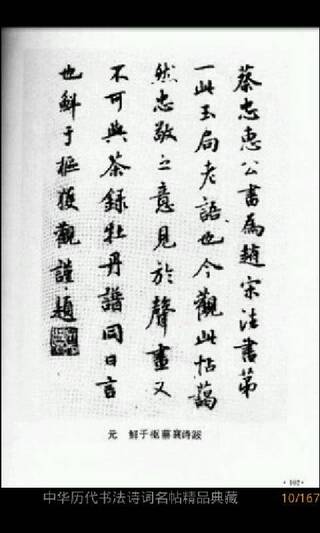 蔡忠惠公書爲趙宋法書第
一此玉局老語也今觀此帖藹
然忠敬之意見於聲畫又
不可與茶錄牡丹譜同日言
也鮮于樞獲觀謹題
元 鮮于樞蔡襄詩跋
·102·
中华历代书法诗词名帖精品典藏 10/167